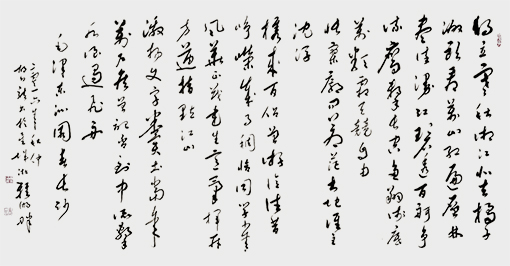 独立寒秋湘江北去橘子
洲头看万山红遍层林
尽染漫江碧透百舸争
流鹰击长空鱼翔浅底
万类霜天竞自由
怅寥廓问苍茫大地谁主
沉浮
携来百侣曾游忆往昔
峥嵘岁月稠恰同学少年
风华正茂书生意气挥斥
方遒指点江山
激扬文字粪土当年
万户侯曾记否到中流击
水浪遏飞舟
毛泽东沁园春长沙
二零一六年秋仲